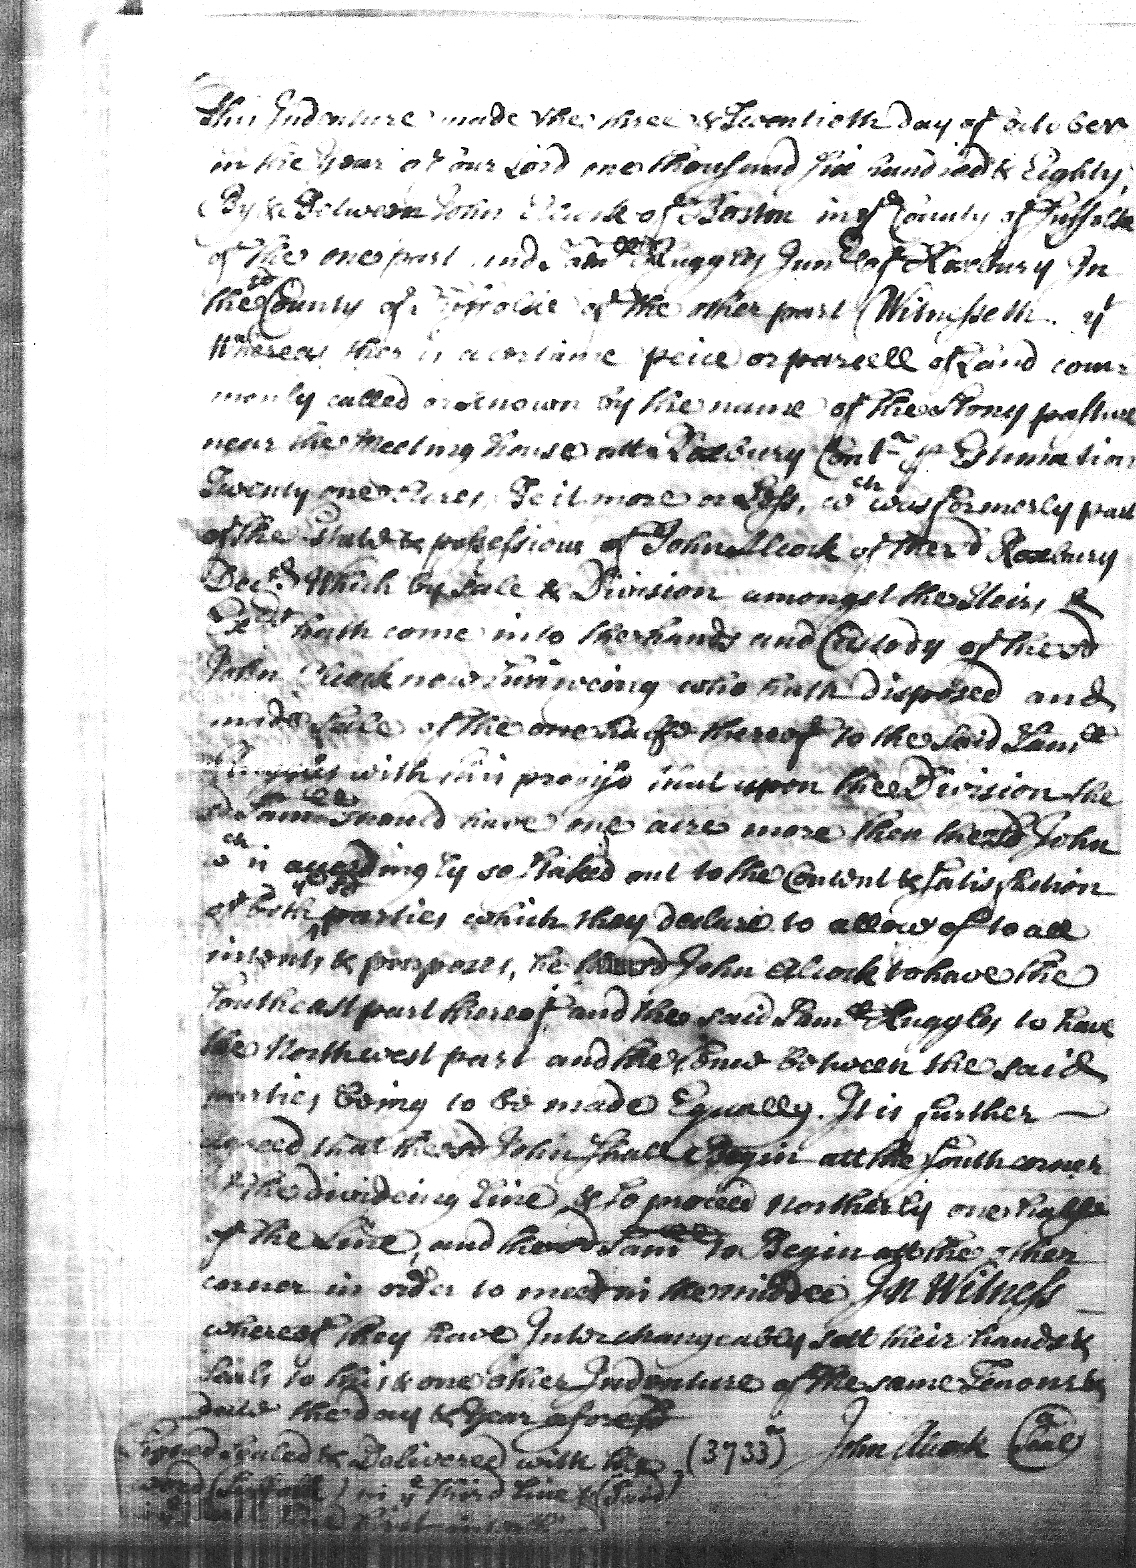 This Indenture made the three & Twentieth day of October
in the Year of our Lord one thousand Six hundred & Eighty,
By & Between John Alcock of Boston in ye County of Suffolk
of the one part and Samll Ruggles Junr of Roxbury In
the County of Suffolk of the other part Witnesseth yt
Whereas ther is a certaine peice or parcell of Land com=
monly called or known by the name of the Stony pasture
near the Meeting house att Roxbury Contn p Estimation
Twenty one Acres, Be it more or Less, wch was formerly part
of the Estate & possessions of John Alcock of the sd Roxbury
Decd Which by Sale & Division amongst the Heirs &
hath come into the hands and Custody of the sd
John Alcock now Surviveing who hath disposed and
made Sale of the one halfe thereof to the Said Samll
Ruggles with this proviso that upon the Division the
sd Samll should have one acre more then the sd John
wch is accordingly so staked out to the Content & Satisfaction
of both ye sd parties which they declare to allow of to all
intents & purposes, he the sd John Alcock to have the
Southeast part thereof and the said Samll Ruggles to have
the Northwest part and the fence between the said
parties being to be made Equally. It is further
agreed that the sd John Shall Begin att the South corner
of the divideing Line & to proceed Northerly one halfe
of the Line, and the sd Samll to Begin att the other
corner in order to meet in the middle In Witness
whereof they have Interchangeably sett their hands &
Seals to this & one other Indenture of the same Tenour &
date the day & Year aforesd
Signed Sealed & Delivered with the (3733) John Alcock Seale
word (Suffolk) in ye third Line & (Said)